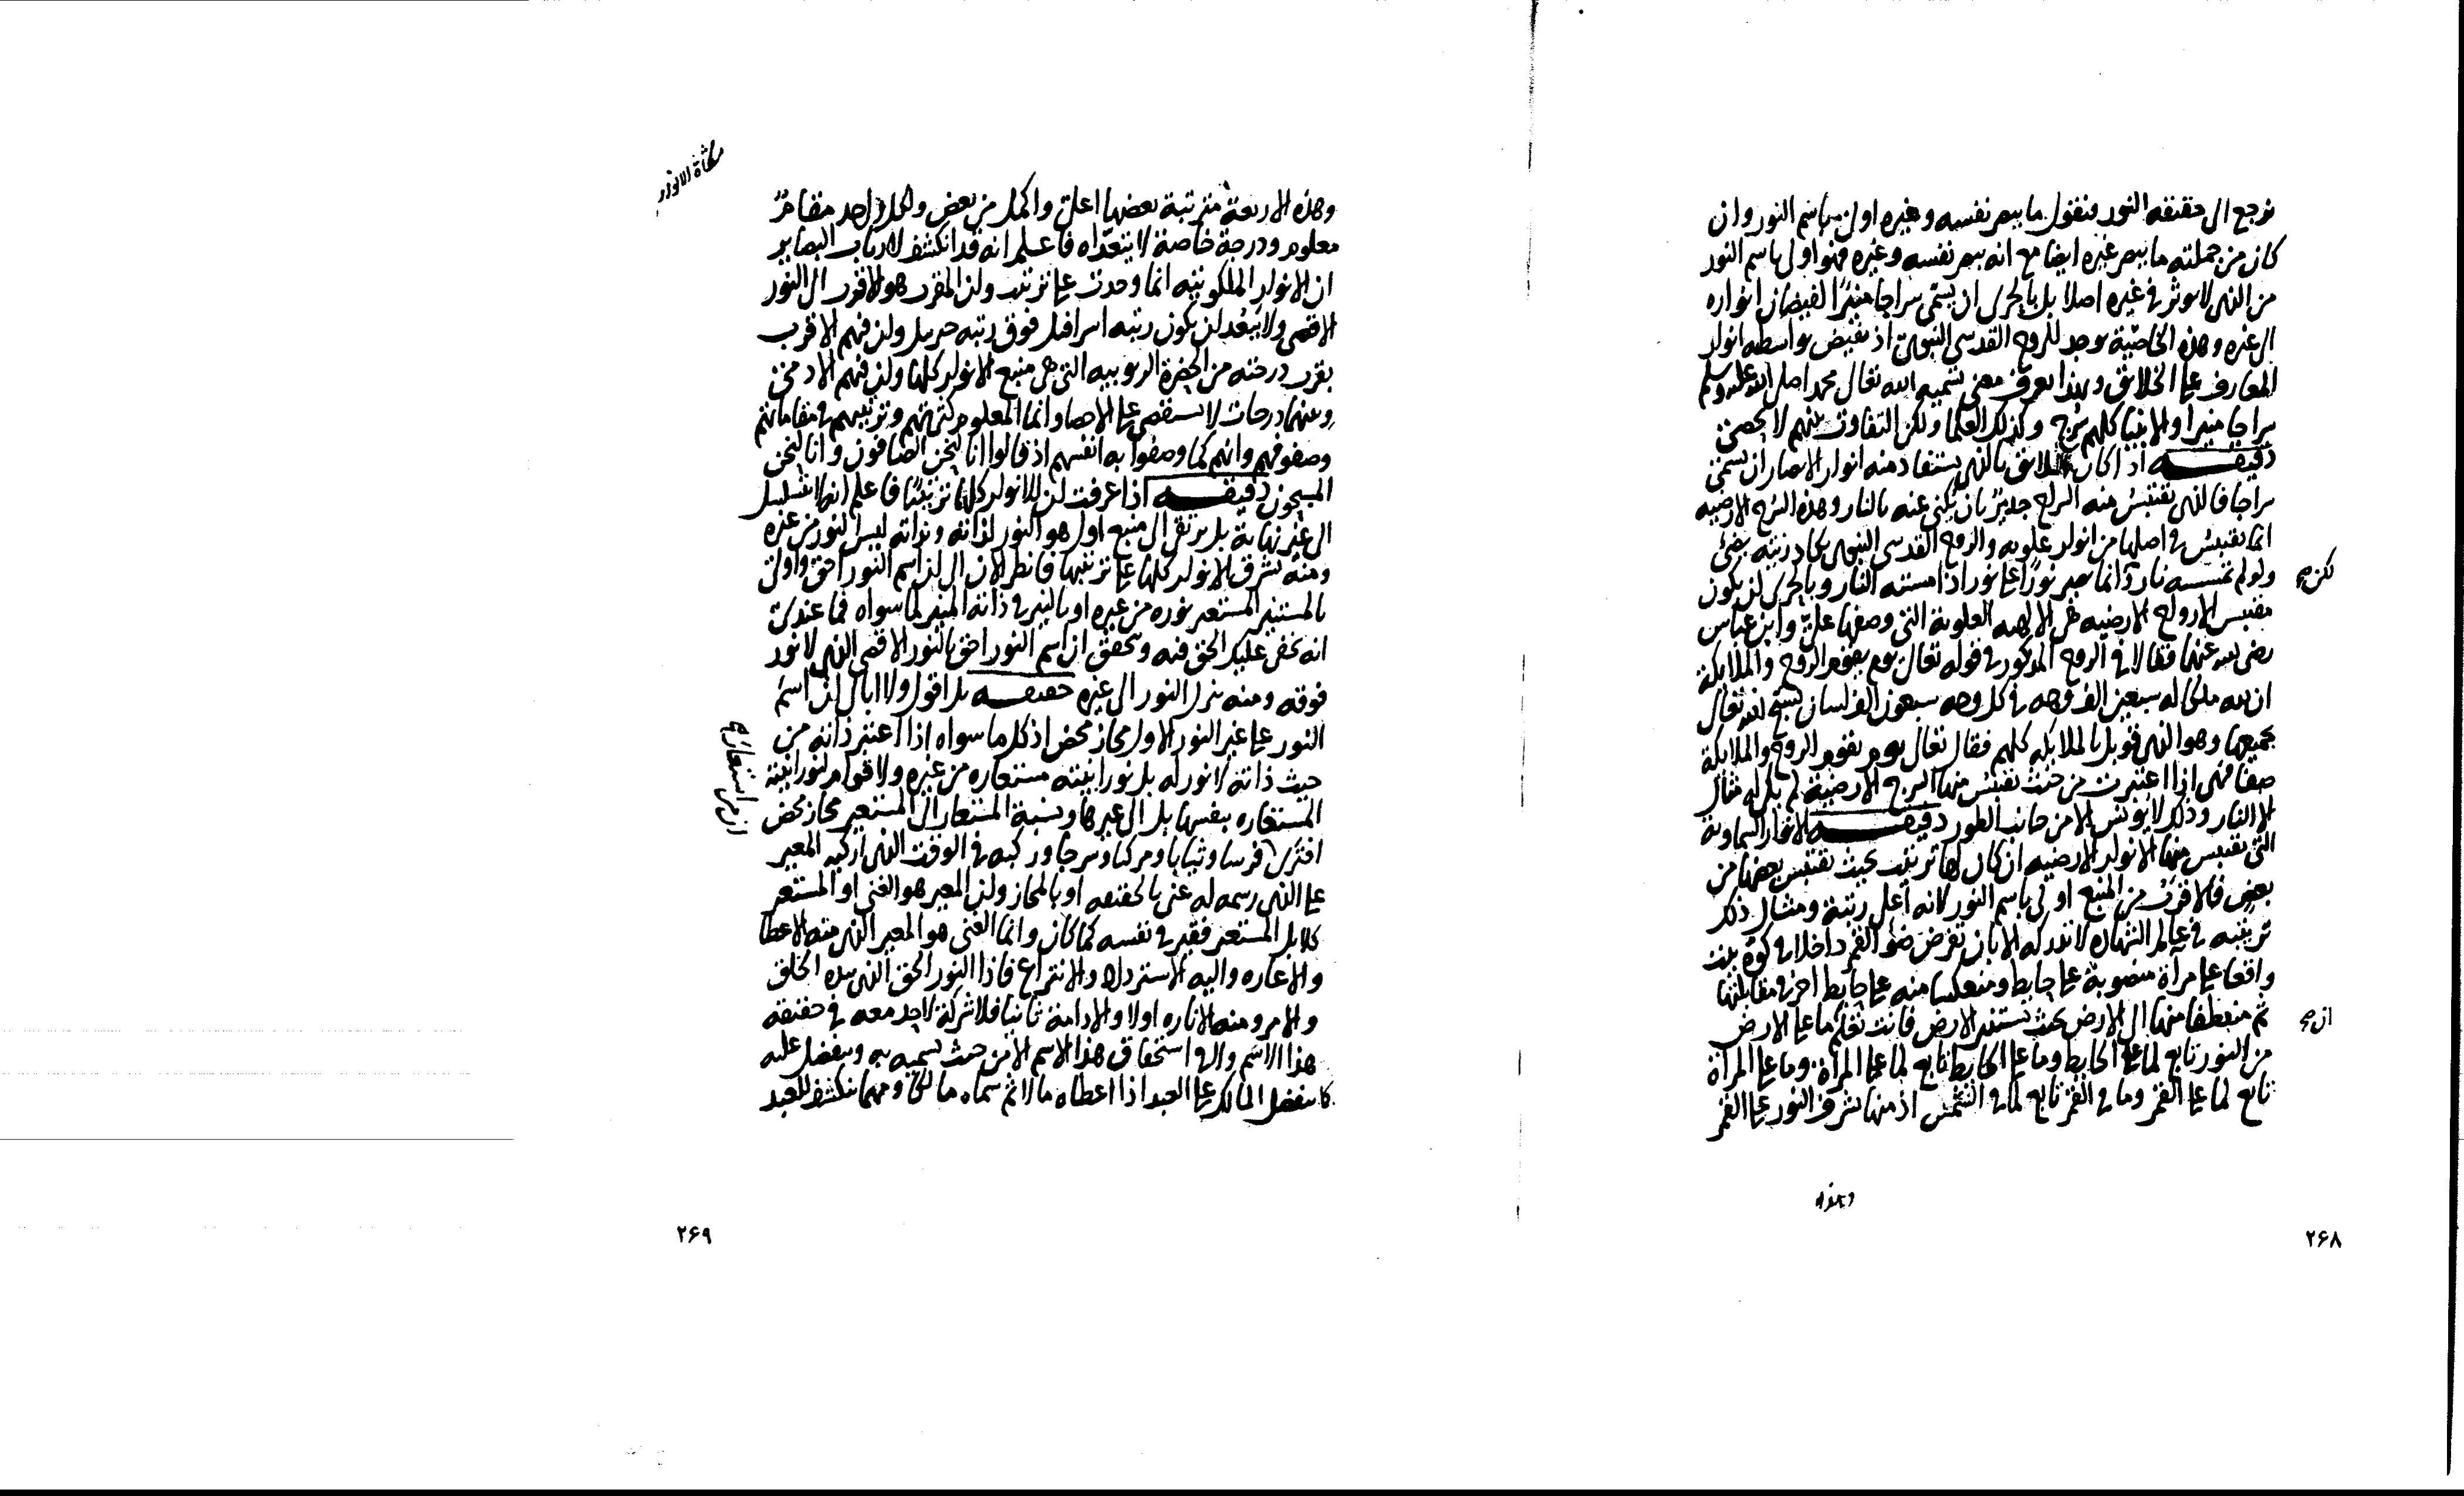 نرجع الى حقيقة النور فنقول ما يبصر نفسه وغيره اولى باسم النور وان
كان من جملته ما يبصر غيره ايضا مع انه يبصر نفسه وغيره فهو اولى باسم النور
من الذى لا يوثر فى غيره اصلا بل بالحرى ان يسمى سراجا منيرا لفيضان انواره
الى غيره وهذه الخاصية توجد للروح القدسى النبوى اذ تفيض بواسطه انوار
المعارف على الخلائق وبهذا تعرف معنى تسميه الله تعالى محمدا صلى الله عليه وسلم
سراجا منيرا والانبيا كلهم سرج وكذلك العلما ولكن التفاوت بينهم لا يحصى
دقيقه اذا كان اللائق بالذى يستفاد منه انوار الابصار ان يسمى
سراجا فالذى يقتبس منه السراج جدير بان يكنى عنه بالنار وهذه السرج الارضيه
انما يقتبس فى اصلها من انوار علويه والروح القدسى النبوى يكاد زيته يضئ
ولو لم تمسسه نار وانما يصير نورا على نور اذا مسته النار وبالحرى ان يكون
لكن صح
مقتبس الارواح الارضيه هى الالهيه العلوية التى وصفها على وابن عباس
رضى الله عنهما فقالا فى الروح المذكور فى قوله تعالى يوم يقوم الروح والملايكة
ان لله ملكا له سبعين الف وجه فى كل وجه سبعون الف لسان يسبح الله تعالى
بجميعها وهو الذى قوبل بالملايكه كلهم فقال تعالى يوم يقوم الروح والملايكة
صفا فهى اذا اعتبرت من حيث يقتبس منها السرج الارضية لم يكن له مثال
الا النار وذلك لا يونس الا من جانب الطور دقيقه الانوار السماوية
التى يقتبس منها الانوار الارضيه ان كان لها ترتيب بحيث يقتبس بعضها من
بعض فالاقرب من المنبع اولى باسم النور لانه اعلى رتبة ومثال ذلك
ترتيبه فى عالم الشهاده لا تدركه الا بان تفرض ضوا القمر داخلا فى كوة بيت
واقعا على مرآة منصوبة على حايط ومنعكسا منه على حايط اخر فى مقابلتها
ثم منعطفا منها الى الارض بحيث تستنير الارض فانت تعلم ما على الارض
ان صح
من النور تابع لما على الحايط وما على الحايط تابع لما على المرآة وما على المرآة
تابع لما على القمر وما فى القمر تابع لما فى الشمس اذ منها يشرق النور على القمر
وهذه
٢۶٨
مشكاة الانوار
وهذه الاربعة مترتبة بعضها اعلى واكمل من بعض ولكل واحد مقام
معلوم ودرجة خاصة لا يتعداه فاعلم انه قد انكشف لارباب البصاير
ان الانوار الملكوتيه انما وجدت على ترتيب وان المقرب هو الاقرب الى النور
الاقصى ولا يبعد ان يكون رتبه اسرافيل فوق رتبه جبريل وان فيهم الاقرب
بقرب درجته من الحضرة الربوبيه التى هى منبع الانوار كلها وان فيهم الادنى
وبينهما درجات لا يستقصى على الاحصا وانما المعلوم كثرتهم وترتيبهم فى مقاماتهم
وصفوفهم وانهم كما وصفوا به انفسهم اذ قالوا انا لنحن الصافون وانا لنحن
المسبحون دقيقه اذا عرفت ان الانوار كلها ترتيبا فاعلم انها لا تتسلسل
الى غير نهاية بل يرتقى الى منبع اول هو النور لذاته وبذاته ليس النور من غيره
ومنه تشرق الانوار كلها على ترتيبها فانظر الان الى ان اسم النور احق واولى
بالمستنير المستعير نوره من غيره او بالنير فى ذاته المنير لما سواه فما عندى
انه يخفى عليك الحق فيه وتحقق ان اسم النور احق بالنور الاقصى الذى لا نور
فوقه ومنه ينزل النور الى غيره حقيقه بل اقول ولا ابالى ان اسم
النور على غير النور الاول مجاز محض اذ كل ما سواه اذا اعتبر ذاته من
حيث ذاته لا نور له بل نورانيته مستعاره من غيره ولا قوام لنورانيته
المستعاره بنفسها بل الى غيرها ونسبة المستعار الى المستعير مجاز محض
افترى ان من استعار صح
افترى فرسا وثيابا ومركبا وسرجا وركبه فى الوقت الذى اركبه المعير
على الذى رسمه له غنى بالحقيقه او بالمجاز وان المعير هو الغنى او المستعير
كلا بل المستعير فقير فى نفسه كما كان وانما الغنى هو المعير الذى منه الاعطا
والاعاره واليه الاسترداد والانتزاع فاذا النور الحق الذى بيده الخلق
والامر ومنه الاناره اولا والادامة ثانيا فلا شركة لاحد معه فى حقيقة
هذا الاسم ولا فى استحقاق هذا الاسم الا من حيث تسميه به ويتفضل عليه
كما يتفضل المالك على العبد اذا اعطاه مالا ثم سماه مالكا ومهما ينكشف للعبد
٢۶٩